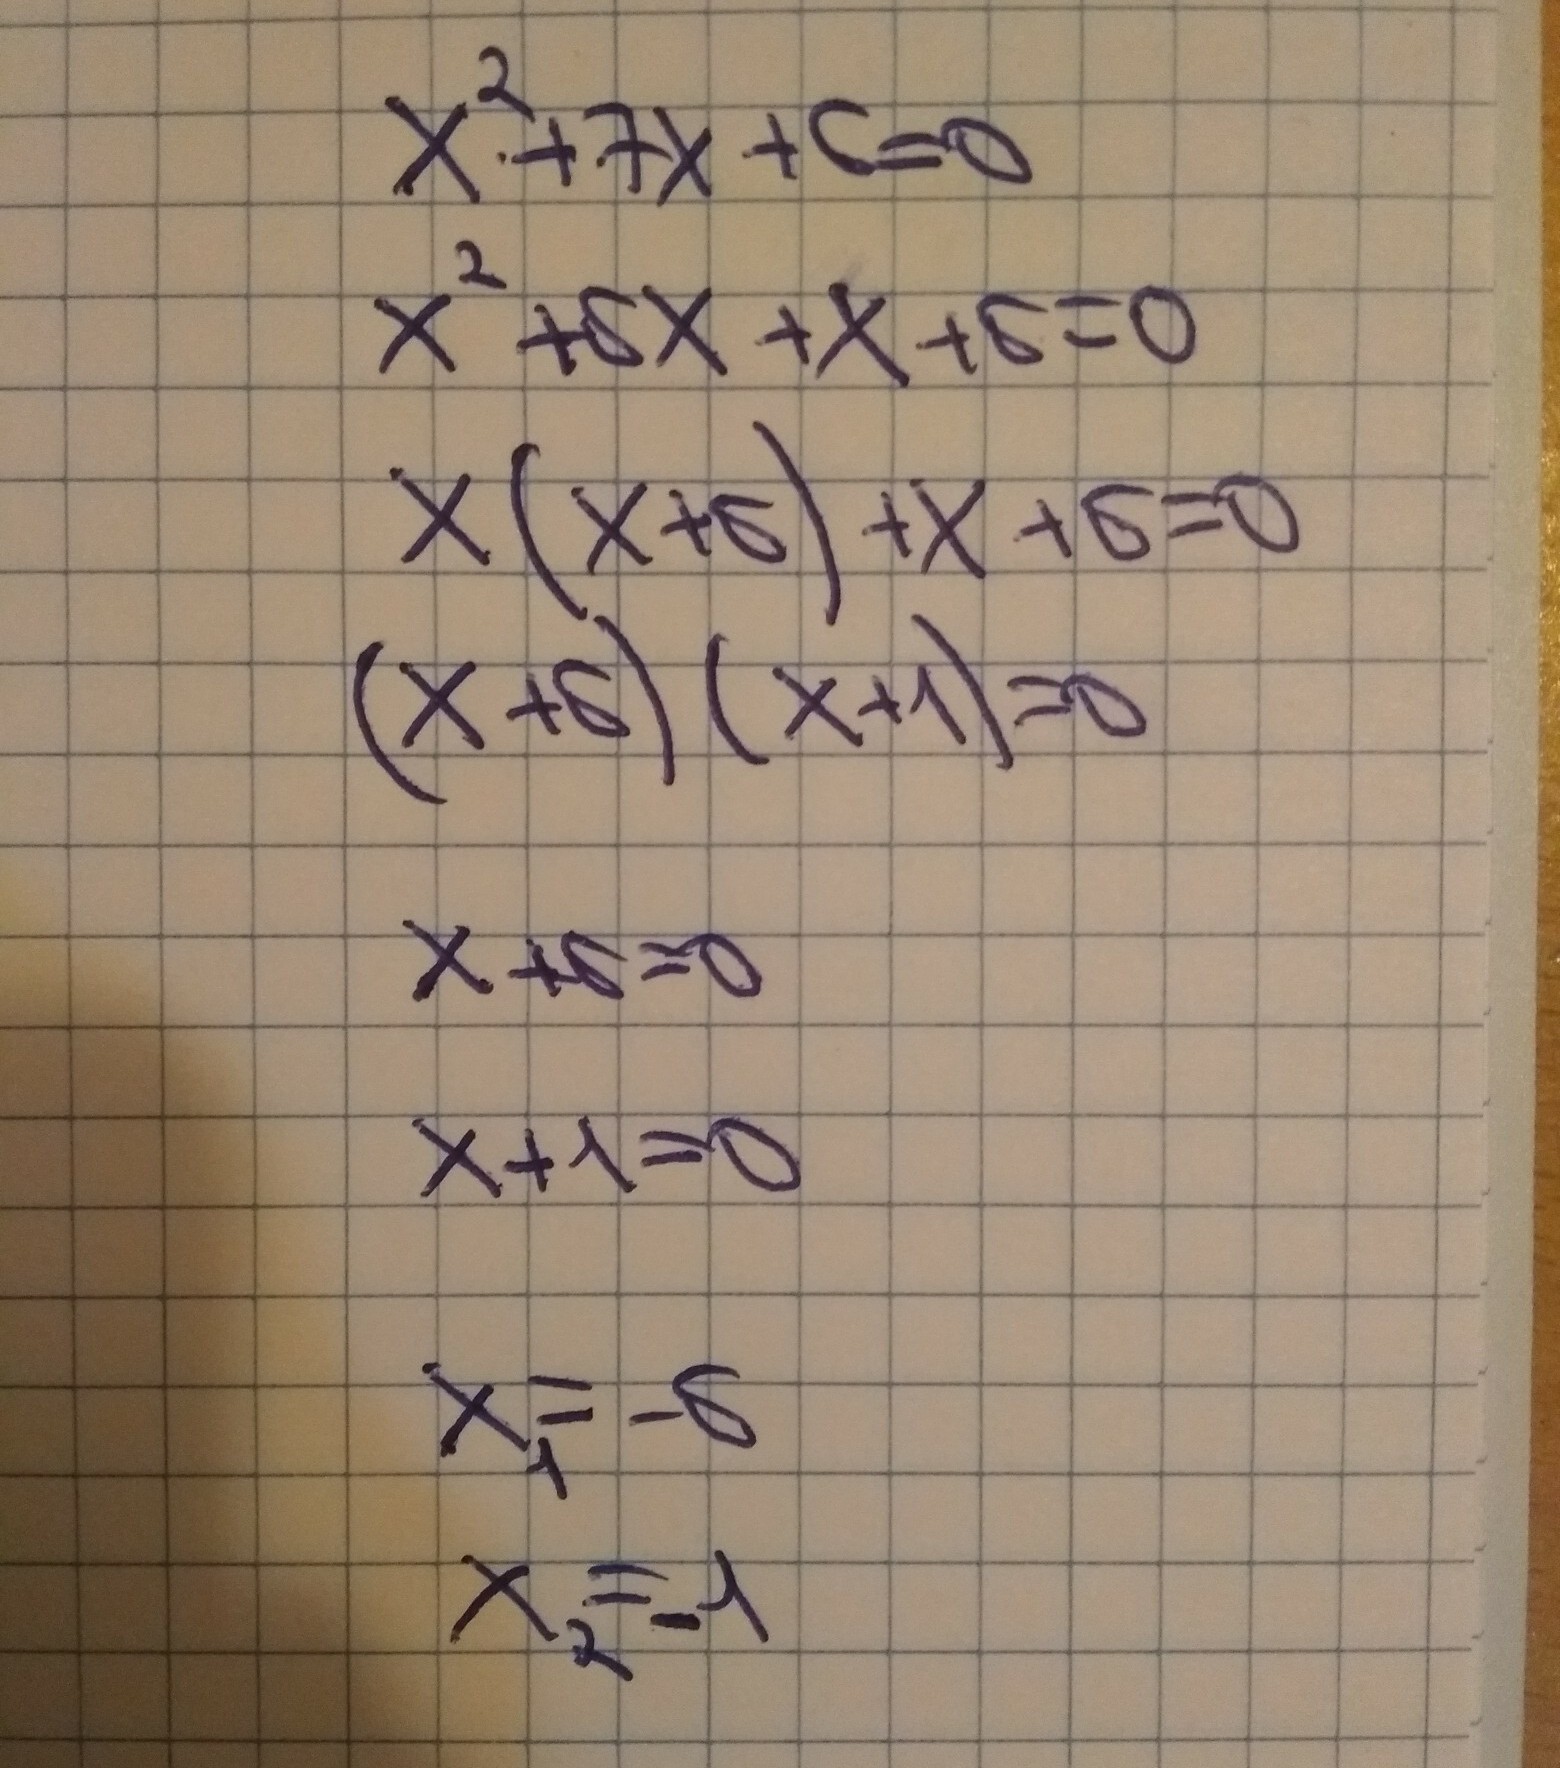 x²+7x+6=0
x²+6x+x+6=0
x(x+6)+x+6=0
(x+6)(x+1)=0
x+6=0
x+1=0
x₁=-6
x₂=-1